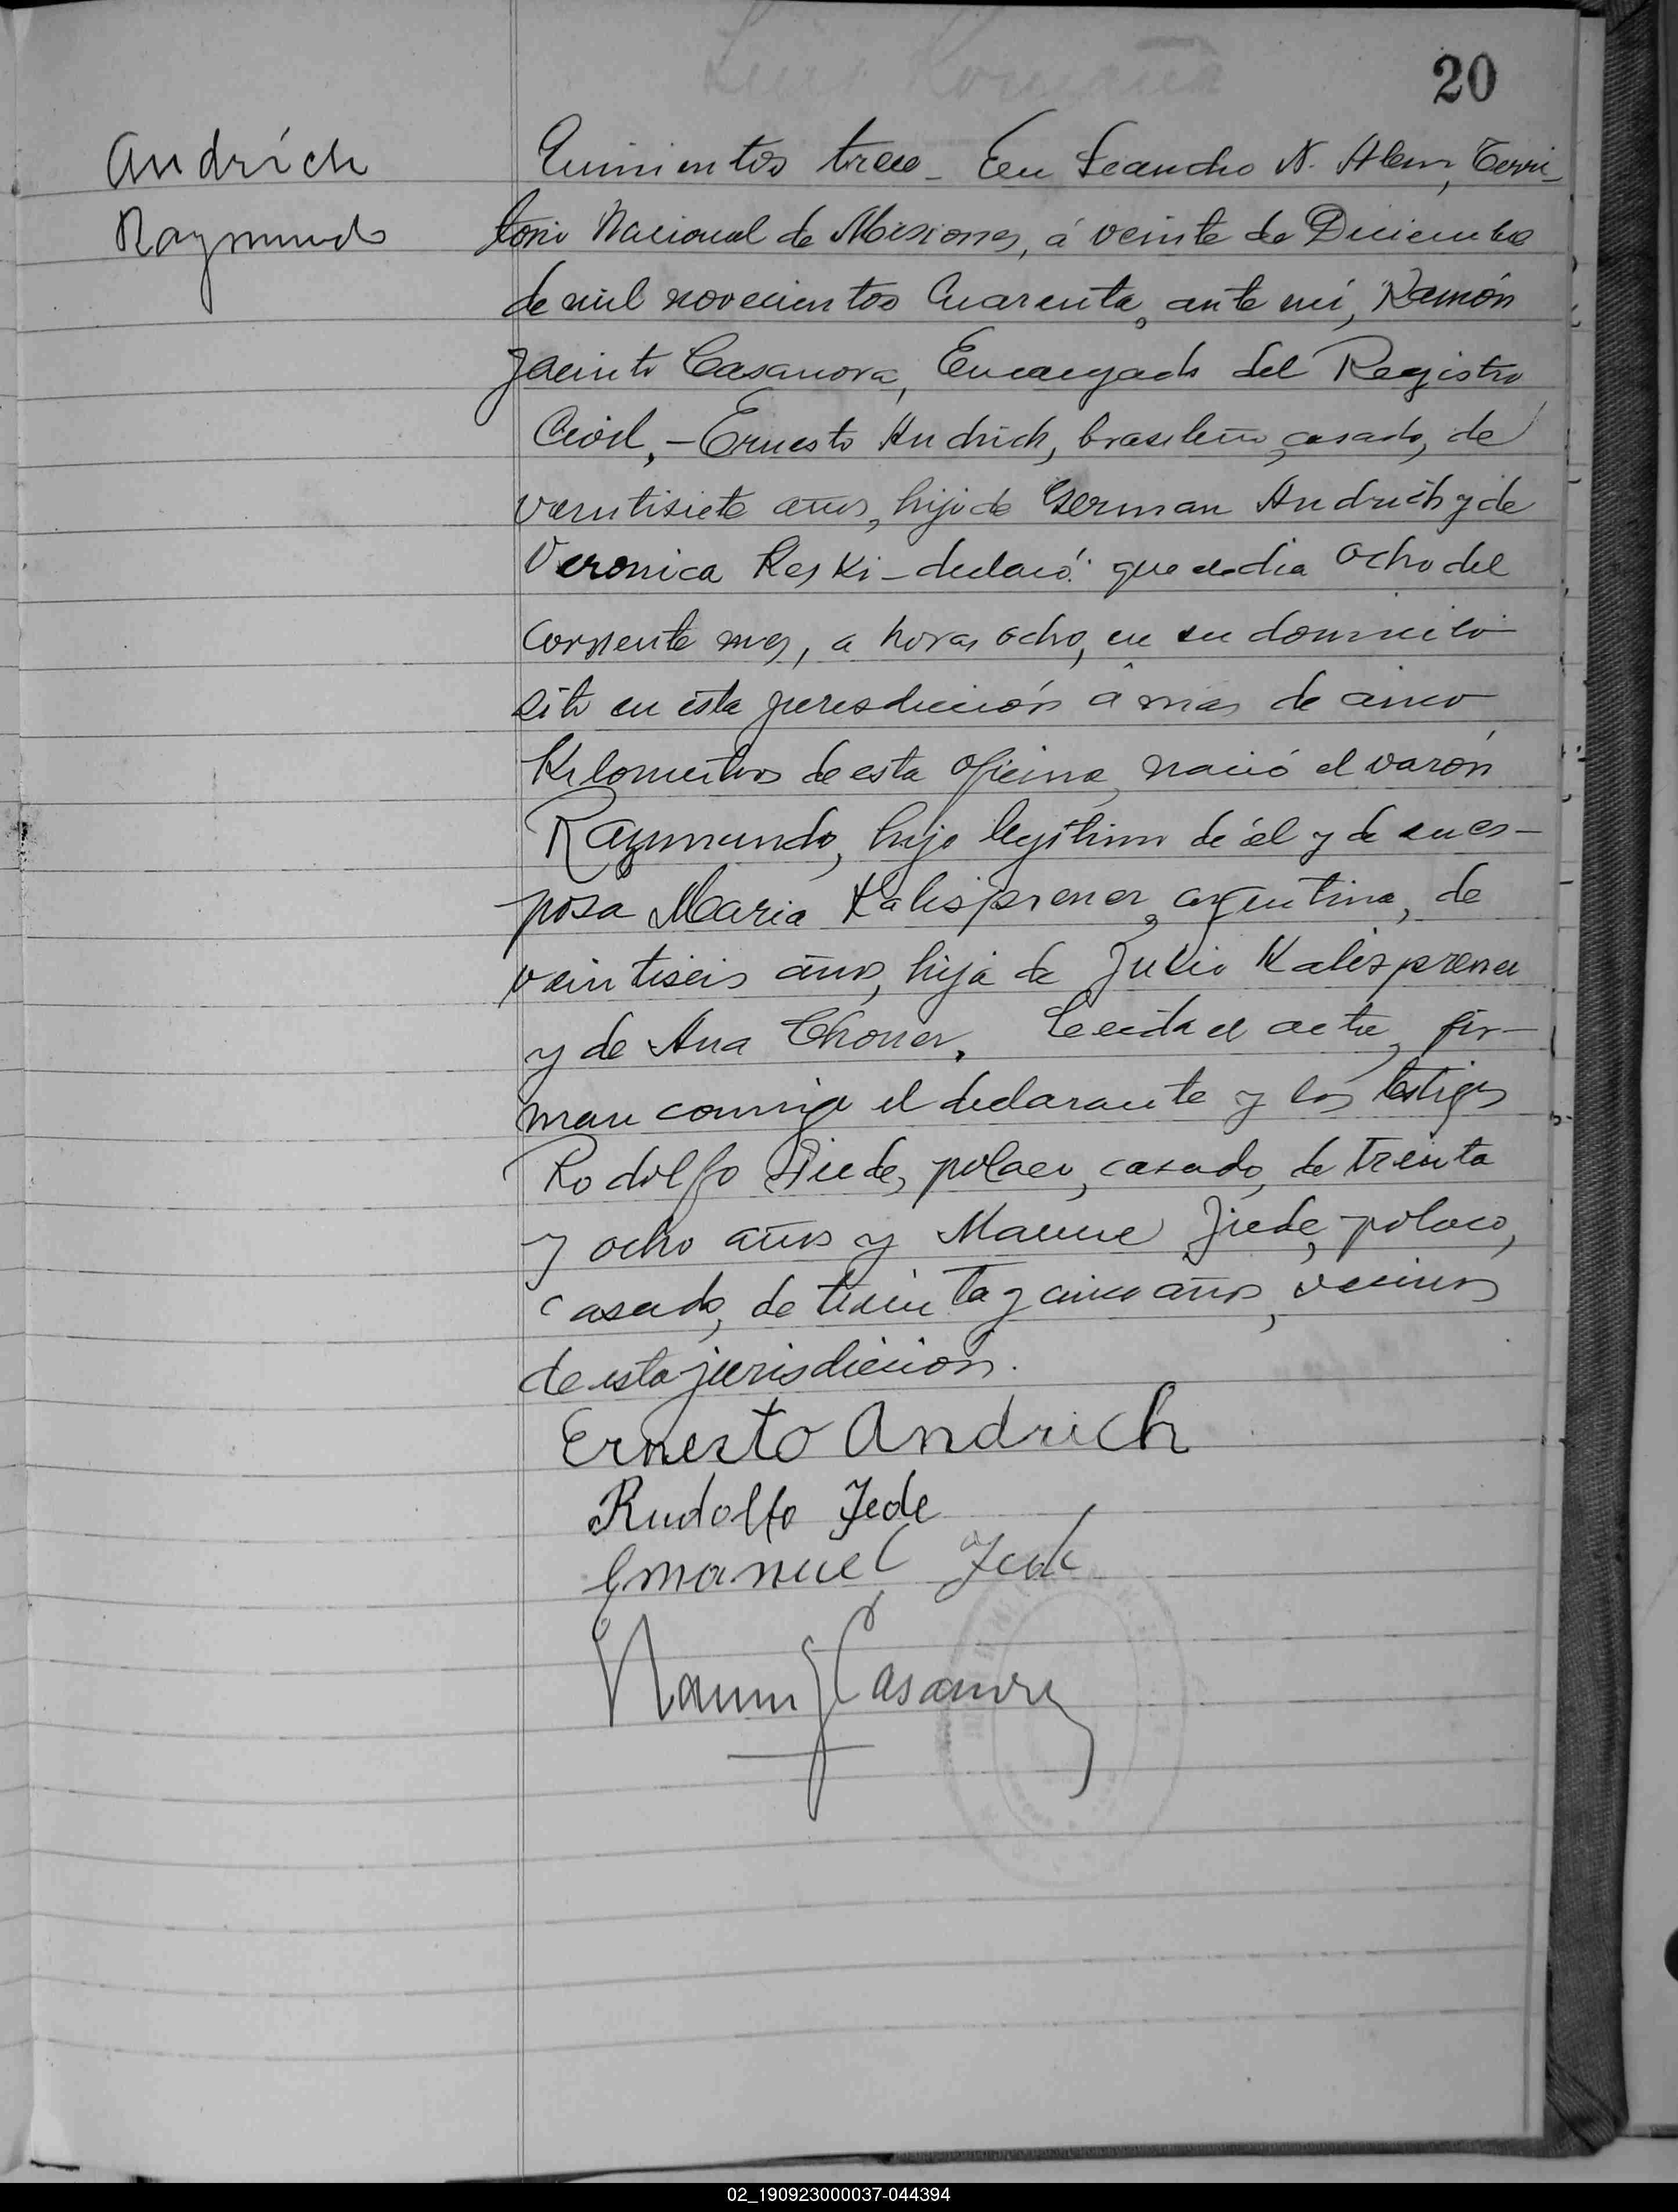 20
Andrich
Raymundo
Quinientos trece - En Leandro N. Alem, Terri-
torio Nacional de Misiones, á veinte de Diciembre
de mil novecientos cuarenta, ante mí, Ramón
Jacinto Casanova, Encargado del Registro
Civil, - Ernesto Andrich, brasileño, casado, de
veintisiete años, hijo de German Andrich y de
Veronica Reski - declaró: que el dia ocho del
corriente mes, a horas ocho, en su domicilio
sito en esta jurisdicción á mas de cinco
Kilometros de esta oficina, nació el varón
Raymundo, hijo legitimo de él y de su es-
posa Maria Kalisprener, argentina, de
veintiseis años, hija de Julio Kalisprener
y de Ana Thoner. Leida el acta, fir-
man conmigo el declarante y los testigos
Rodolfo Jiede, polaco, casado, de treinta
y ocho años y Jiede, polaco,
casado, de treinta y cinco años, vecinos
de esta jurisdiccion.
Ernesto Andrich
Rudolfo Jede
Emanuel Jede
Ramon J Casanova
02_190923000037-044394